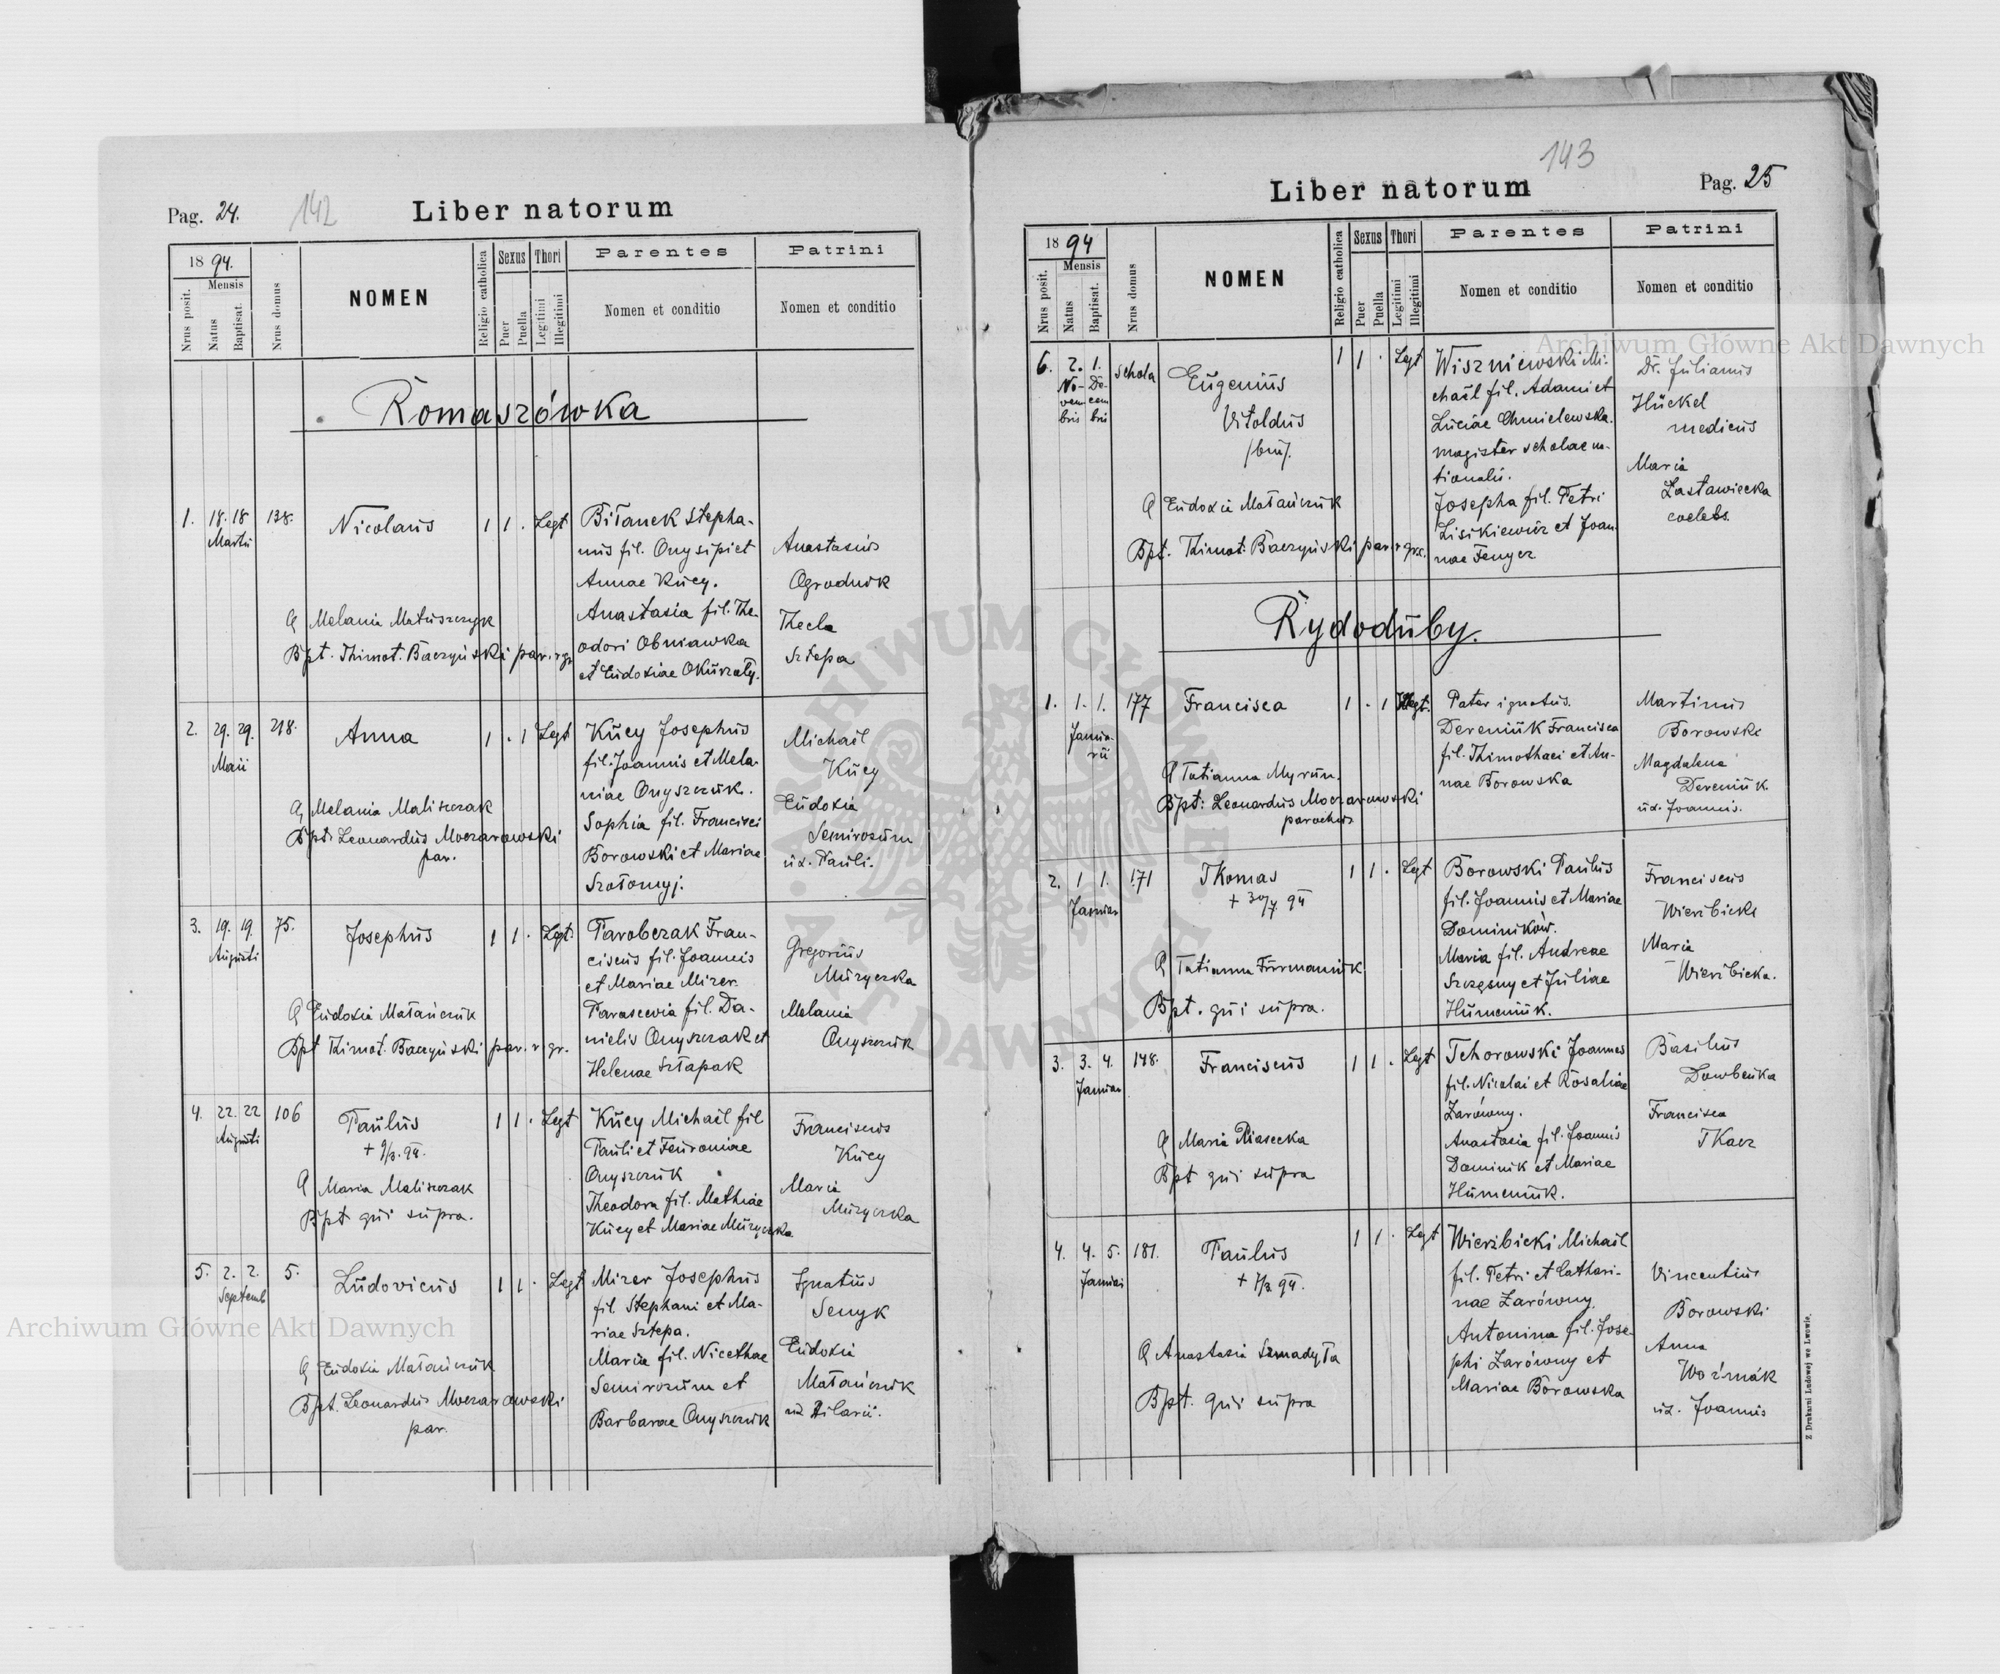 Pag. 24.
142
Liber natorum
18 94.
Mensis
Nrus posit.
Natus
Baptisat.
Nrus domus
NOMEN
Religio catholica
Sexus
Puer
Puella
Thori
Legitimi
Illegitimi
Parentes
Nomen et conditio
Patrini
Nomen et conditio
Romaszówka
1. 18. 18 138. Nicolaus 1 1 . Legt
Martii
Biłanek Stepha-
nus fil. Onysipi et
Annae Kucy.
Anastasia fil. The-
odori Obniawka
et Eudoxiae
Anastasius
Ogrodnik
Thecla
Sztepa
Melania Matuszczyk
Bpt. Thimot. Baczyński par. r. gr.
2. 29. 29. 218. Anna 1 . 1 Legt
Maii
Kucy Josephus
fil. Joannis et Mela-
niae Onyszczuk.
Sophia fil. Francisci
Borowski et Mariae
Szołomyj.
Michaël
Kucy
Eudoxia
Semirozum
ux. Pauli.
Melania Maliszczak
Bpt. Leonardus Moczarowski
par.
3. 19. 19. 75. Josephus 1 1 . Legt.
Augusti
Parobczak Fran-
ciscus fil. Joannis
et Mariae Mizer.
Parascevia fil. Da-
nielis Onyszczak et
Helenae Sztapak
Gregorius
Muzyczka
Melania
Onyszczuk
Eudoxia Matańczuk
Bpt Thimot. Baczyński par. r. gr.
4. 22. 22 106 Paulus 1 1 . Legt
Augusti
+ 9/3. 94.
Kucy Michaël fil
Pauli et Feuroniae
Onyszczuk
Theodora fil. Mathiae
Kucy et Mariae Muzyczka
Franciscus
Kucy
Maria
Muzyczka
Maria Maliszczak
Bpt qui supra.
5. 2. 2. 5. Ludovicus 1 1 . Legt
Septemb
Mizer Josephus
fil. Stephani et Ma-
riae Sztepa.
Maria fil. Nicethae
Semirozum et
Barbarae Onyszczuk
Ignatius
Senyk
Eudoxia
Matańczuk
ux Hilarii.
Eudoxia Matańczuk
Bpt. Leonardus Moczarowski
par.
143
Liber natorum
Pag. 25
18 94
Mensis
Nrus posit.
Natus
Baptisat.
Nrus domus
NOMEN
Religio catholica
Sexus
Puer
Puella
Thori
Legitimi
Illegitimi
Parentes
Nomen et conditio
Patrini
Nomen et conditio
6. 2. 1. schola Eugenius 1 1 . Legt
No- De-
vem cem
bris bris
Vitoldus
/bin/.
Wiszniewski Mi-
chaël fil. Adami et
Luciae Chmielewska.
magister scholae na-
tionalis.
Josepha fil. Petri
Lisikiewicz et Joan-
nae Fenycz
Dr. Julianus
Hückel
medicus
Maria
Zastawiecka
coelebs.
Eudoxia Matańczuk
Bpt. Thimot. Baczyński par. r. grc.
Rydoduby.
1. 1. 1. 177 Francisca 1 . 1 Illegt.
Janua-
rii
Pater ignotus.
Dereniuk Francisca
fil. Thimothaei et An-
nae Borowska
Martinus
Borowski
Magdalena
Dereniuk
ux. Joannis.
Tatianna Myrun.
Bpt: Leonardus Moczarowski
parochus
2. 1 1. 171 Thomas 1 1 . Legt
Januar
+ 30/7. 94
Borowski Paulus
fil. Joannis et Mariae
Dominików.
Maria fil. Andreae
Szczęsny et Juliae
Humeniuk.
Franciscus
Wierzbicki
Maria
Wierzbicka.
Tatianna Furmaniuk
Bpt. qui supra.
3. 3. 4. 148. Franciscus 1 1 . Legt
Januar
Tchorowski Joannes
fil. Nicolai et Rosaliae
Zarówny.
Anastasia fil. Joannis
Dominik et Mariae
Humeniuk.
Basilius
Dowbenka
Francisca
Tkacz
Maria Piasecka
Bpt qui supra
4. 4. 5. 181. Paulus 1 1 . Legt
Januari
+ 7/3. 94.
Wierzbicki Michaël
fil. Petri et Cathari-
nae Zarówny
Antonina fil. Jose-
phi Zarówny et
Mariae Borowska
Vincentius
Borowski
Anna
Woźniak
ux. Joannis
Anastasia
Bpt. qui supra
Z Drukarni Ludowej we Lwowie.
Archiwum Główne Akt Dawnych
Archiwum Główne Akt Dawnych
ARCHIWUM GŁÓWNE AKT DAWNYCH